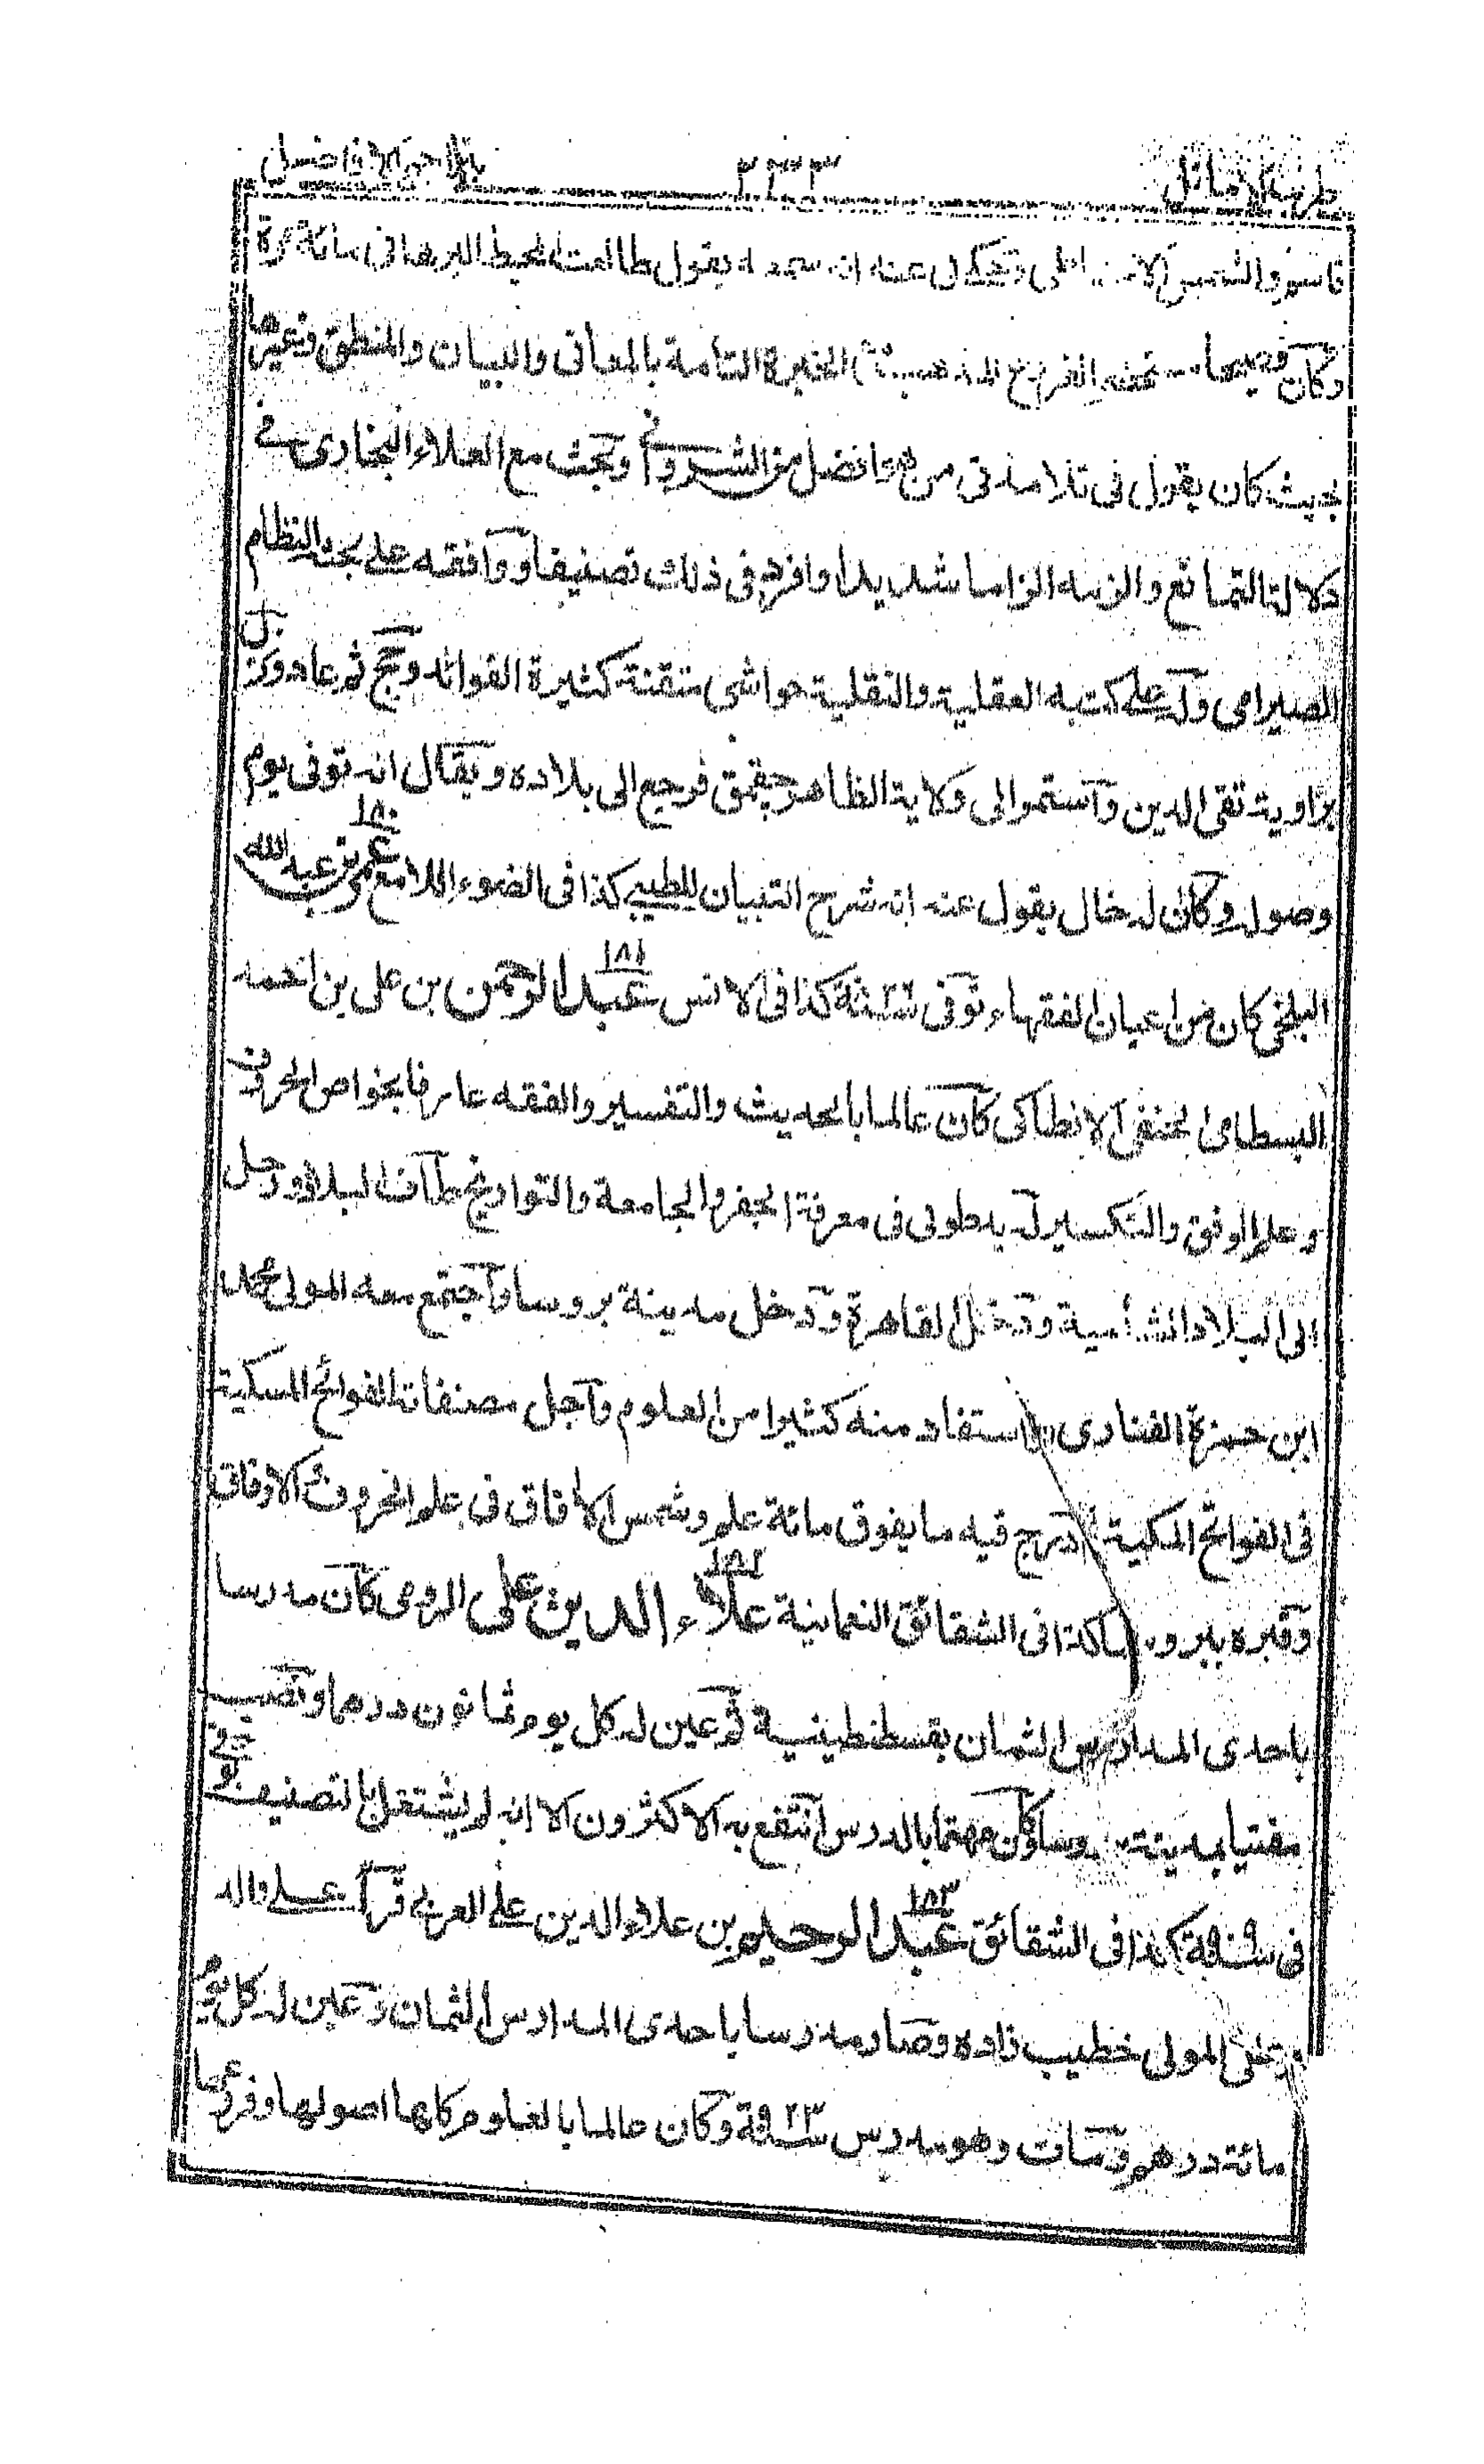 طرب الاماثل ٢٣٣ بتراجم الافاضل
قاسم والشمس الا يحكى عنه انه سمعه يقول طالعت المحيط البرهانى مائة مرة
وكان فصيحا الخبرة التامة بالمعانى والبيان والمنطق وغيرها
بحيث كان يقول فى تلامذتى من هو افضل من الشروانى وبحث مع العلاء البخارى فى
دلالة التمانع والزمه الزاما شديدا وافرد فى ذلك تصنيفا ووافقه على بحثه النظام
الصيرامى وله على كتبه العقلية والنقلية حواشى متقنة كثيرة الفوائد وحج ثم عاد ونزل
بزاوية تقى الدين واستمر الى ولاية الظاهر جقمق فرجع الى بلاده ويقال انه توفى يوم
وصوله وكان له خال يقول عنه انه شرح التبيان للطيبى كذا فى الضوء اللامع ١٨٠ عمر بن عبد الله
البلخى كان من اعيان الفقهاء توفى كذا فى الانس ١٨١ عبد الرحمن بن على بن احمد
البسطامى الحنفى الانطاكى كان عالما بالحديث والتفسير والفقه عارفا بخواص الحروف
وعلم الوفق والتكسير له يد طولى فى معرفة الجفر والجامعة والتواريخ طاف البلاد ورحل
الى البلاد الشامية ودخل القاهرة ودخل مدينة بروسا واجتمع معه المولى محمد
ابن حمزة الفنارى واستفاد منه كثيرا من العلوم واجل مصنفاته الفوائح المسكية
فى الفواتح المكية ادرج فيه ما يفوق مائة علم وشمس الافاق فى علم الحروف والاوفاق
وقبره ببروسا كذا فى الشقائق النعمانية ١٨٢ علاء الدين على الرومى كان مدرسا
باحدى المدارس الثمان بقسطنطينية ثم عين له كل يوم ثمانون درهما ونصب
مفتيا بمدينة بروسا وكان مهتما بالدرس انتفع به الاكثرون الا انه لم يشتغل بالتصنيف توفى
فى سنة ٩٠٩ كذا فى الشقائق ١٨٣ عبد الرحيم بن علاء الدين على العربى قرأ على والده
وعلى المولى خطيب زاده وصار مدرسا باحدى المدارس الثمان وعين له كل يوم
مائة درهم ومات وهو مدرس سنة ٩٢٣ وكان عالما بالعلوم كلها اصولها وفروعها